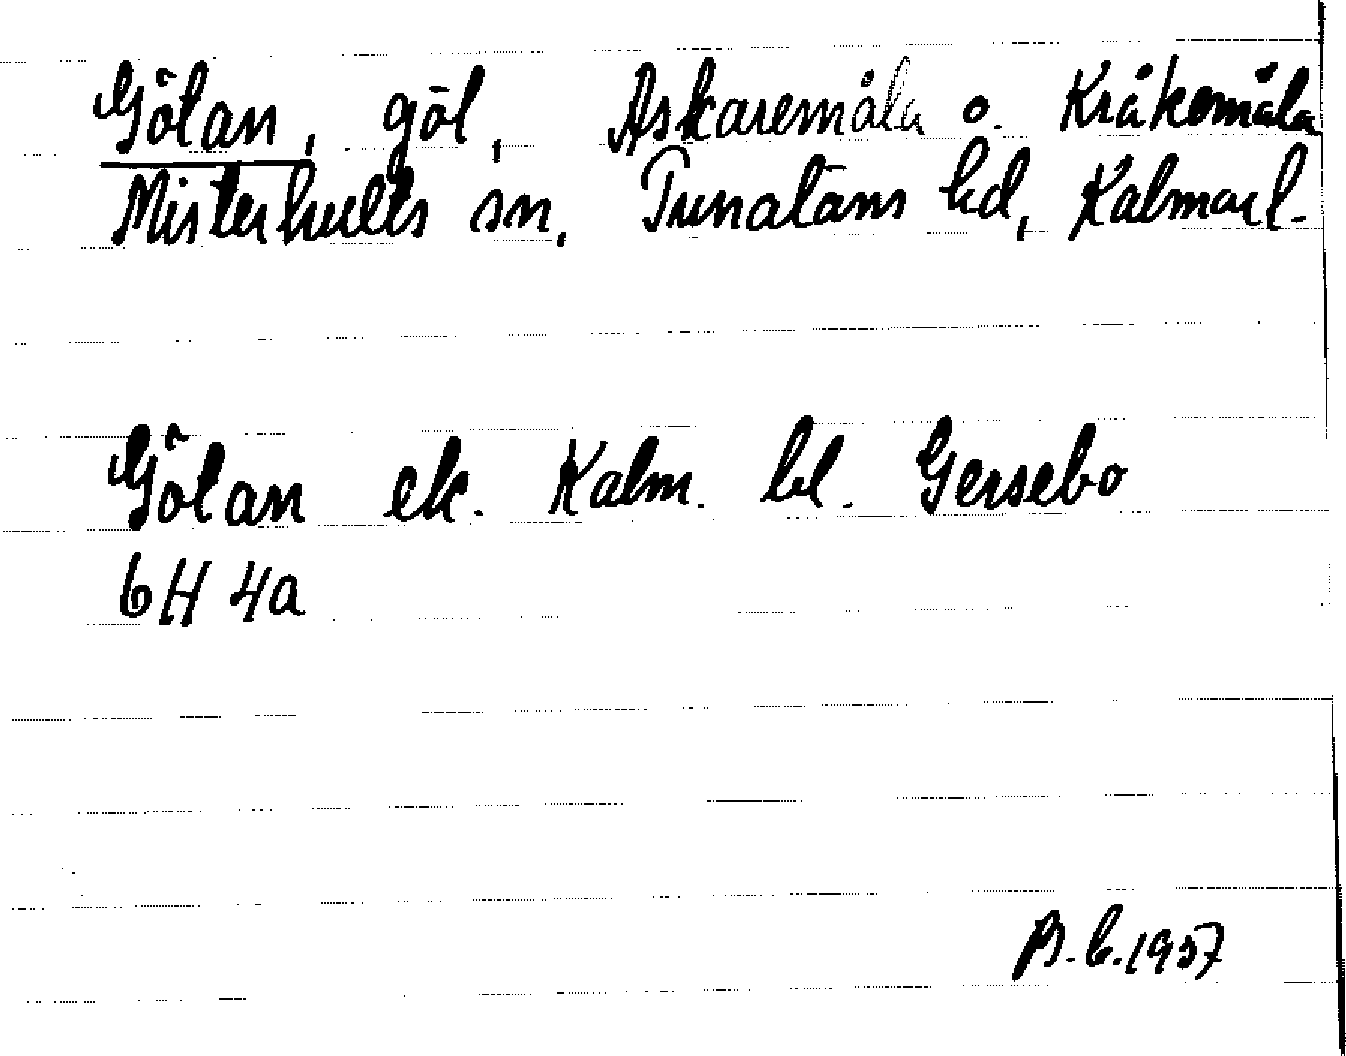 Gölan, göl, Askaremåla o. Kråkemåla
Misterhults sn, Tunaläns hd, Kalmar l.
Gölan ek. Kalm. bl. Gersebo
6H 4a
B.E.1957